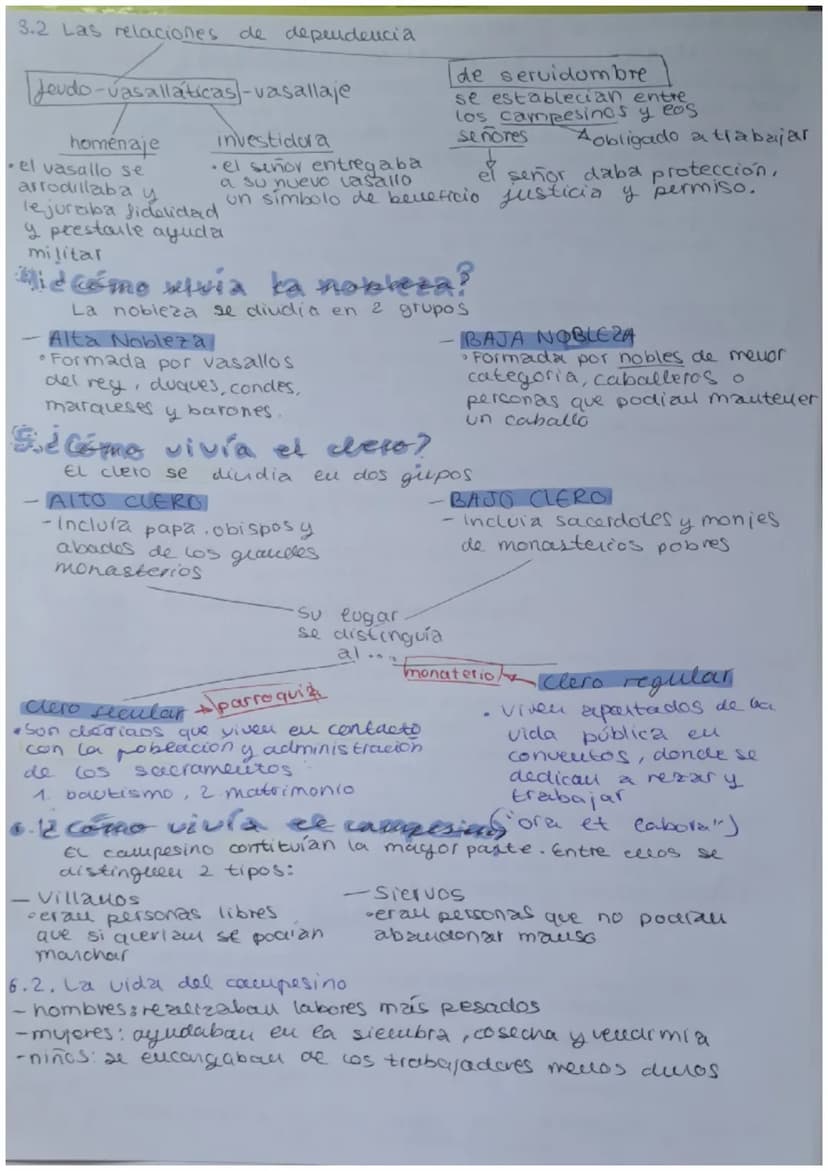 3.2 Las relaciones de dependencia
feudo-vasalláticas-vasallaje
homenaje
•el vasallo se
arrodillaba y
le juraba fidelidad
y prestarle ayuda
militar
investidura
•el señor entregaba
a su nuevo vasallo
un símbolo de beneficio
de servidumbre
se establecían entre
los campesinos y los
señores
obligado a trabajar
el señor daba protección,
justicia y permiso.
4.¿Cómo vivía la nobleza?
La nobleza se dividía en 2 grupos
- Alta Nobleza
•Formada por vasallos
del rey, duques, condes,
marqueses y barones.
- BAJA NOBLEZA
•Formada por nobles de menor
categoría, caballeros o
personas que podían mantener
un caballo
5.¿Cómo vivía el clero?
El clero se dividía en dos grupos
- ALTO CLERO
- Incluía papa, obispos y
abades de los grandes
monasterios
- BAJO CLERO
- incluía sacerdotes y monjes
de monasterios pobres
Su lugar
se distinguía
al ...
clero secular → parroquia
•Son clérigos que viven en contacto
con la población y administración
de los sacramentos
1. bautismo, 2. matrimonio
monaterio clero regular
• Viven apartados de la
vida pública en
conventos, donde se
dedican a rezar y
trabajar
("ora et labora")
6.¿Cómo vivía el campesino
El campesino contituían la mayor parte. Entre ellos se
distinguen 2 tipos:
- Villanos
•eran personas libres
que si querían se podían
marchar
- Siervos
•eran personas que no podían
abandonar manso
6.2. La vida del campesino
- hombres: realizaban labores más pesados
- mujeres: ayudaban en la siembra, cosecha y vendimia
- niños: se encargaban de los trabajadores menos duros